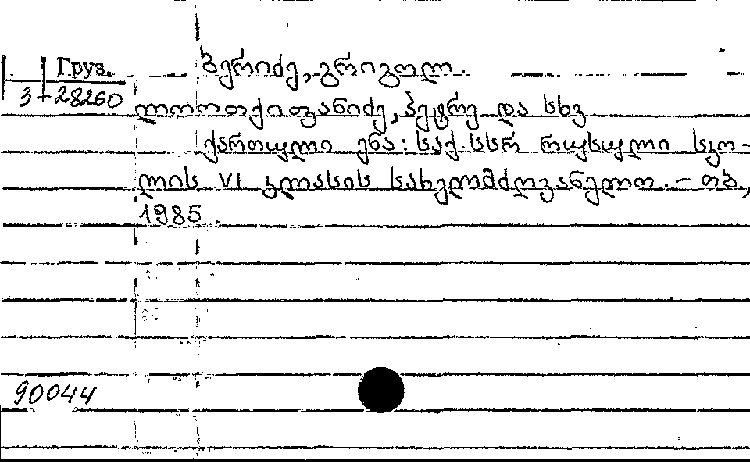 Груз.
3-28260
ბერიძე, გრიგოლ.
ლოლოთქიფანიძე, პეტრე და სხვ
ქართული ენა: საქ. სსრ რუსული სკო-
ლის VI კლასის სახელმძღვანელო. - თბ.,
1985.
90044